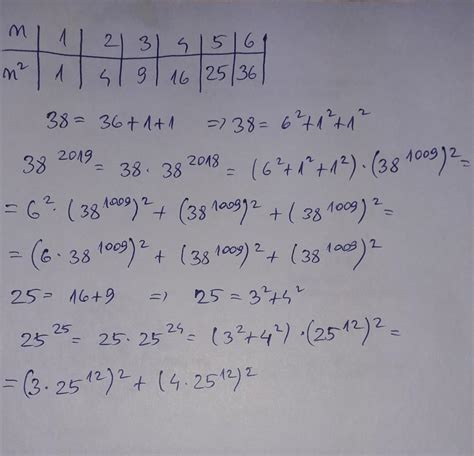 n | 1 | 2 | 3 | 4 | 5 | 6
n² | 1 | 4 | 9 | 16 | 25 | 36
38 = 36+1+1 => 38 = 6²+1²+1²
38²⁰¹⁹ = 38 · 38²⁰¹⁸ = (6²+1²+1²) · (38¹⁰⁰⁹)² =
= 6² · (38¹⁰⁰⁹)² + (38¹⁰⁰⁹)² + (38¹⁰⁰⁹)² =
= (6 · 38¹⁰⁰⁹)² + (38¹⁰⁰⁹)² + (38¹⁰⁰⁹)²
25 = 16+9 => 25 = 3²+4²
25²⁵ = 25 · 25²⁴ = (3²+4²) · (25¹²)² =
= (3 · 25¹²)² + (4 · 25¹²)²